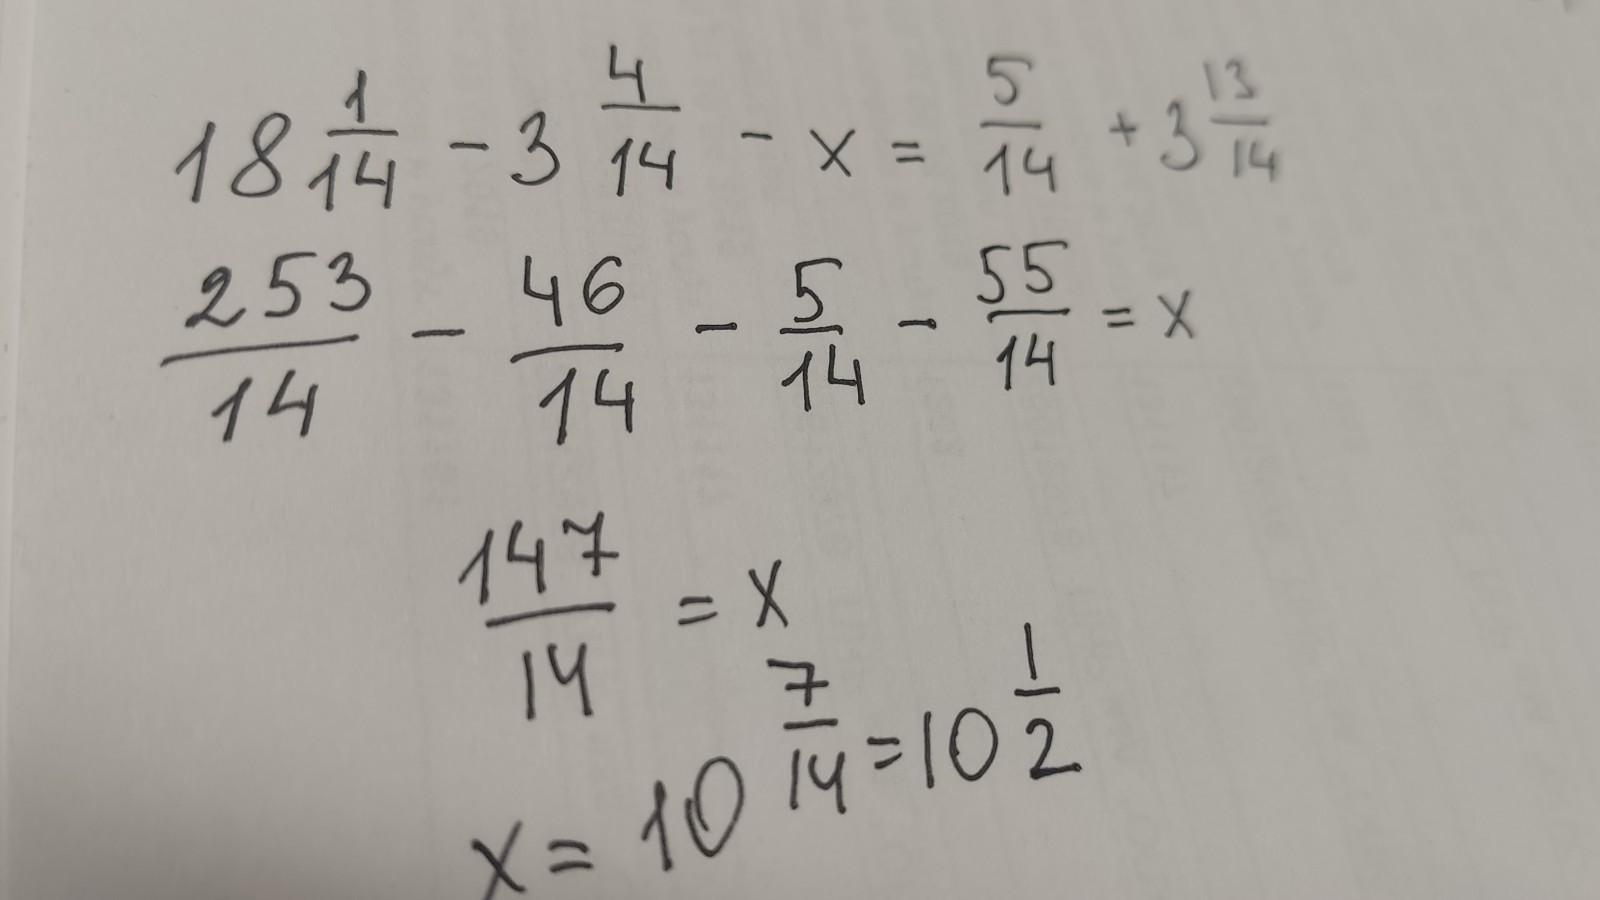 18 1/14 - 3 4/14 - x = 5/14 + 3 13/14
253/14 - 46/14 - 5/14 - 55/14 = x
147/14 = x
x = 10 7/14 = 10 1/2